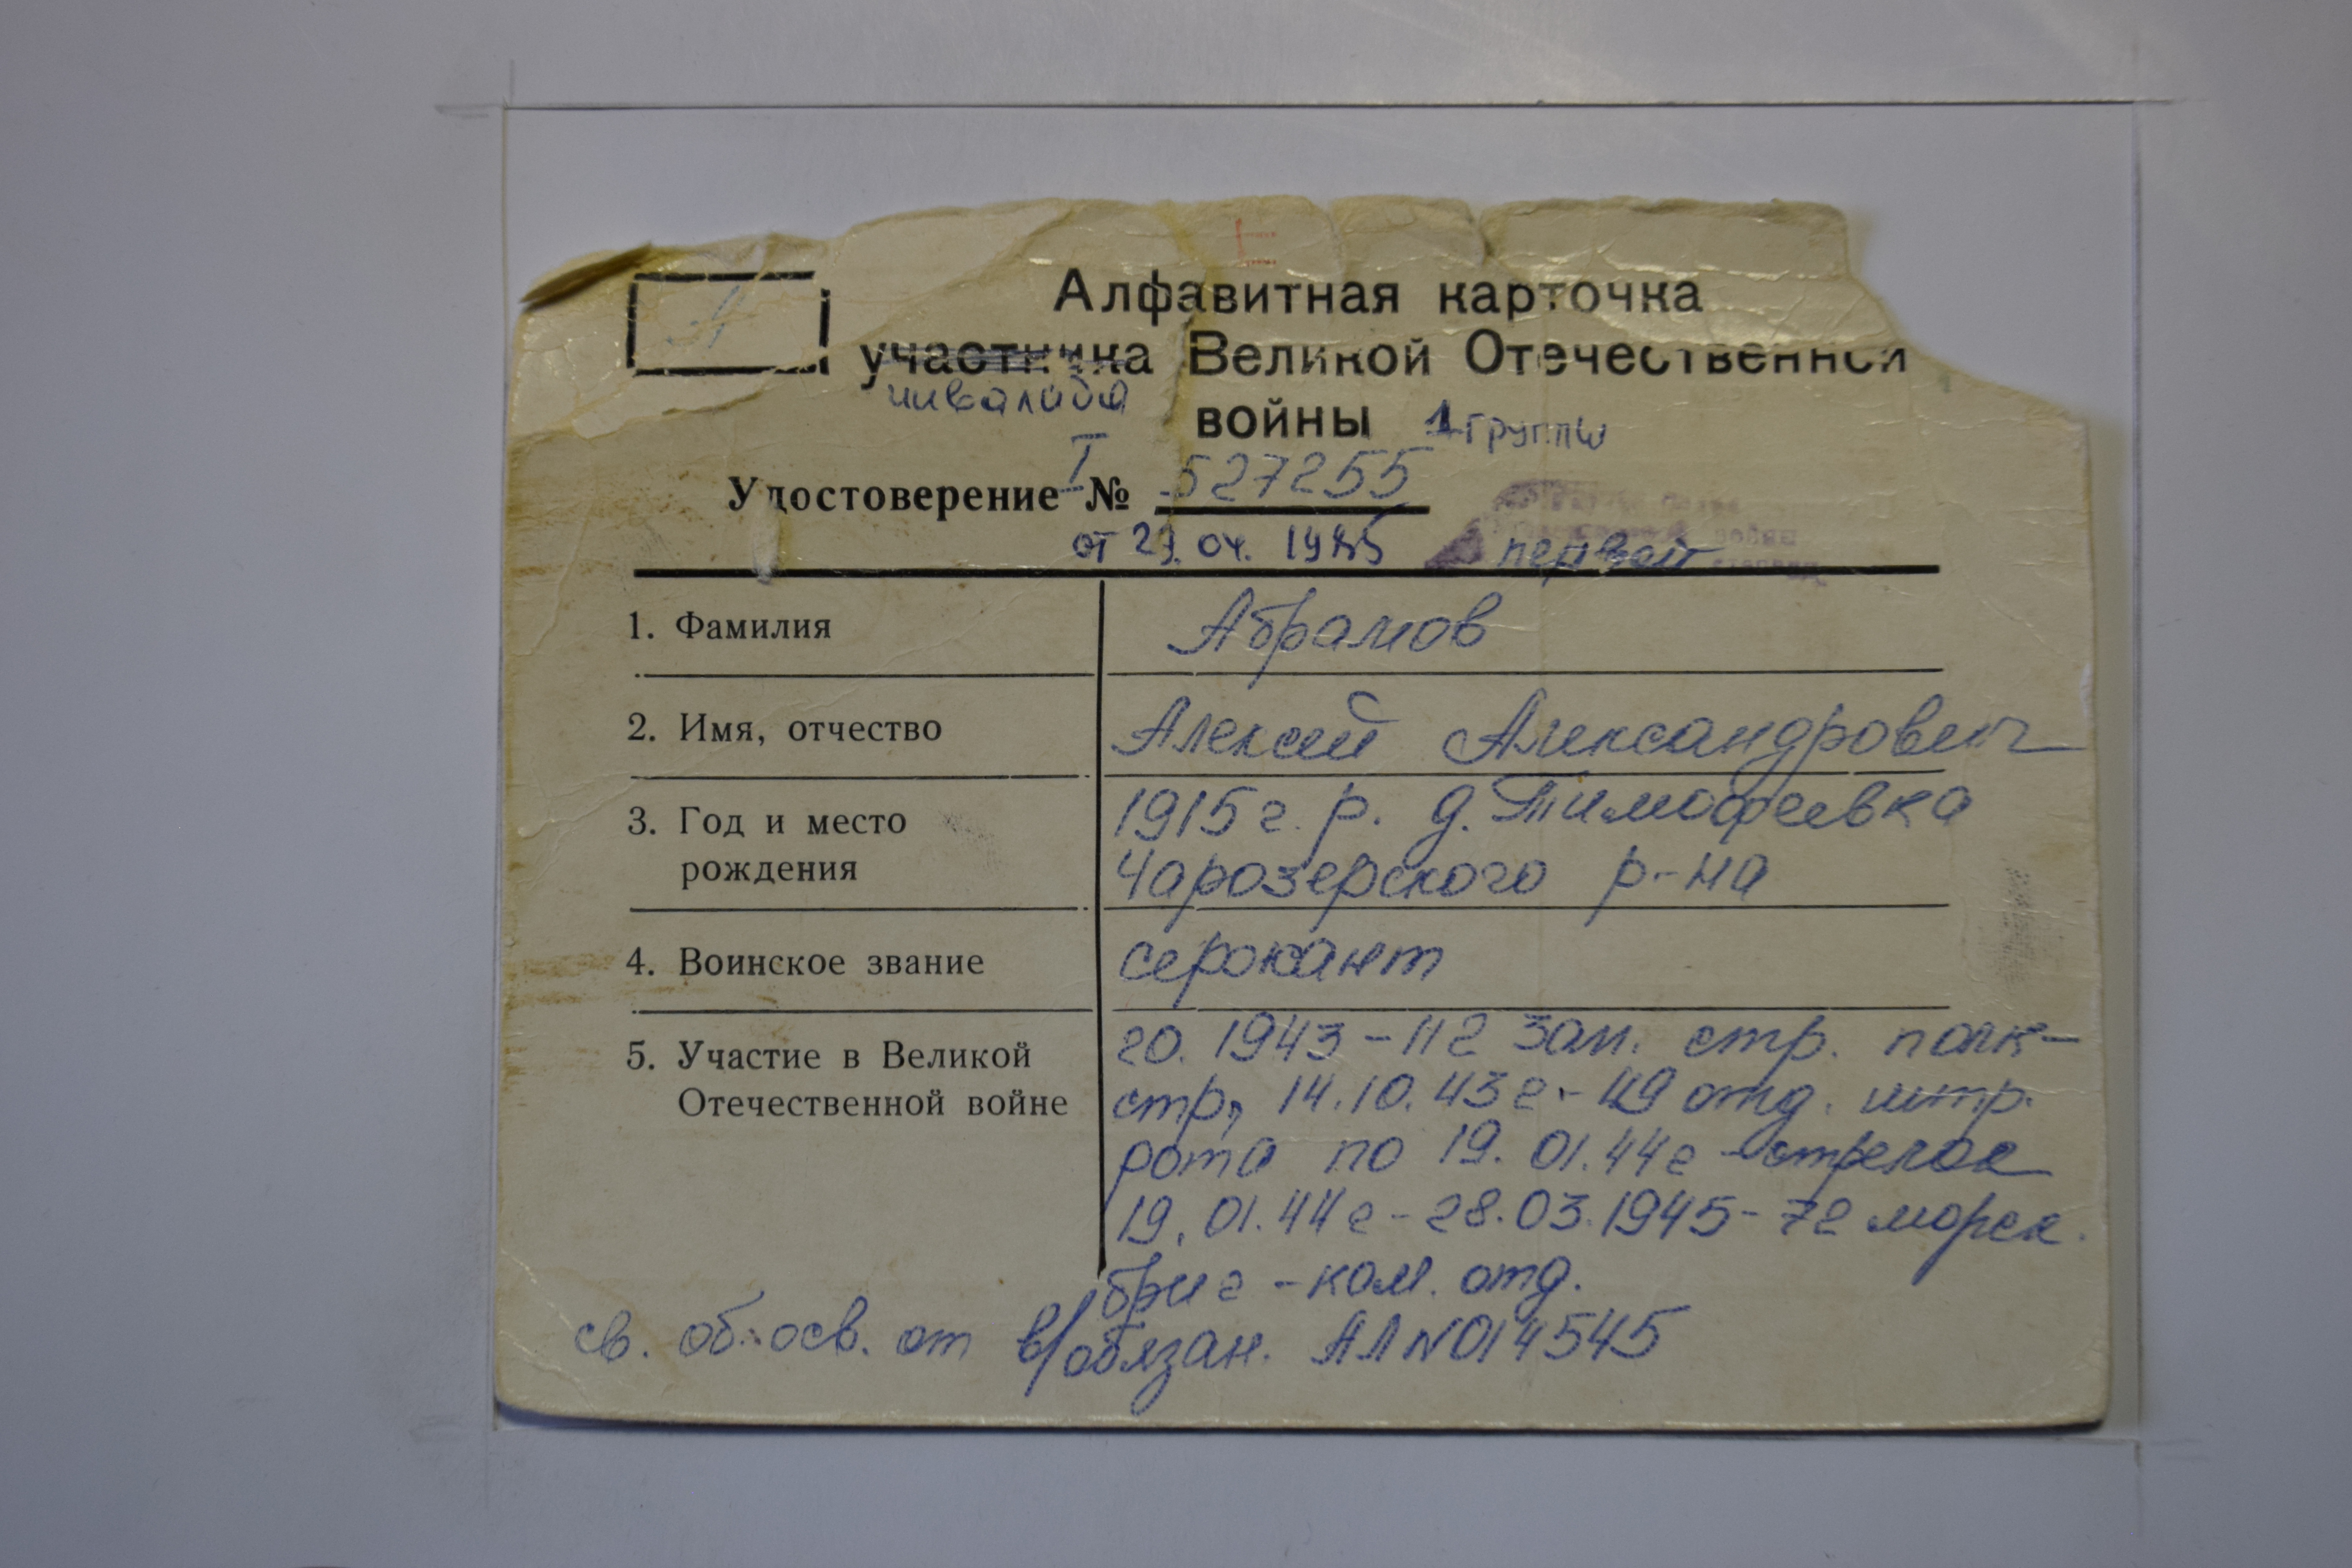 А
Алфавитная карточка
участника Великой Отечественной
инвалида
войны 1 группы
Удостоверение I № 527255
от 29.04.1985 первой
1. Фамилия Абрамов
2. Имя, отчество Алексей Александрович
3. Год и место 1915 г. р. д. Тимофеевка
рождения Чарозерского р-на
4. Воинское звание сержант
5. Участие в Великой 20. 1943 - 112 зап. стр. полк-
Отечественной войне стр, 14.10.43г - 49 отд. штр.
рота по 19.01.44г - стрелок
19.01.44г - 28.03.1945 - 72 морск.
бриг - ком. отд.
св. об осв. от в/обязан. АЛ N014545